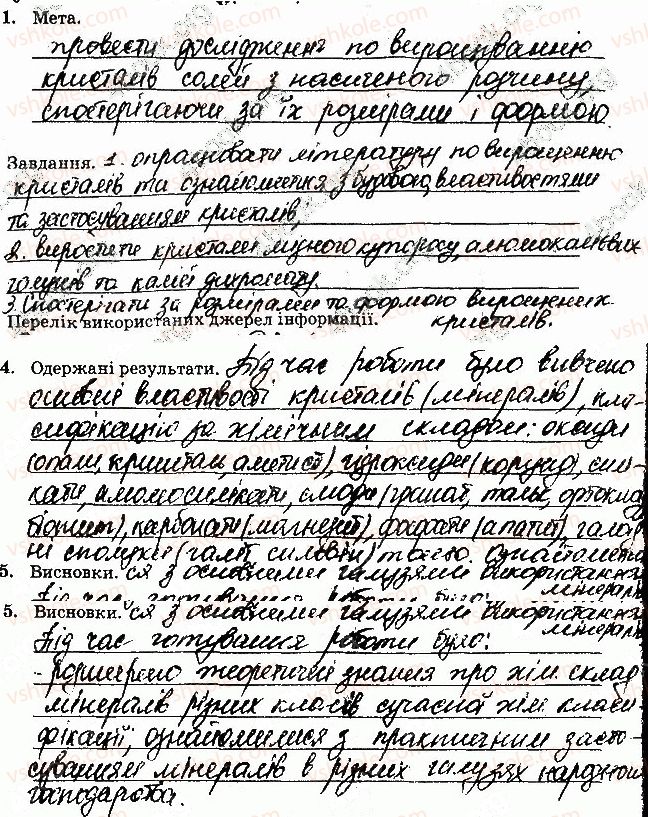 1. Мета.
провести дослідження по вирощуванню
кристалів солей з насиченого розчину,
спостерігаючи за їх розмірами і формою.
Завдання. 1. опрацювати літературу по вирощенню
кристалів та ознайомлення з будовою, властивостями
та застосуванням кристалів,
2. виростити кристали мідного купоросу, алюмокалієвих
галунів та калій дихромату.
3. Спостерігати за розмірами та формою вирощених
Перелік використаних джерел інформації. кристалів.
4. Одержані результати. Під час роботи було вивчено
основні властивості кристалів (мінералів), кла-
сифікацію за хімічним складом: оксиди
(опали, кришталь, аметист), гідроксиди (корунд), силі-
кати, алюмосилікати, слюди (гранат, тальк, ортоклаз
), карбонати (магнезит), фосфати (апатит), галоге
ні сполуки (галіт, сильвін) та ін. Ознайомили
5. Висновки. ся з основними галузями використання
мінералів
5. Висновки. ся з основними галузями використання
мінералів
Під час готування роботи було:
- розширено теоретичні знання про хім. склад
мінералів різних класів сучасної хім. класи-
фікації, ознайомилися з практичним засто-
суванням мінералів в різних галузях народного
господарства.